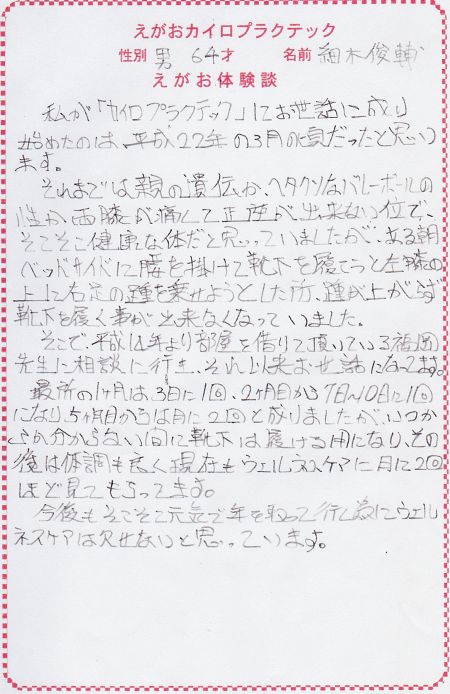 えがおカイロプラクテック
性別 男 64才 名前 細木俊輔
えがお体験談
私が「カイロプラクテック」にお世話に成り
始めたのは、平成22年の3月の頃だったと思い
ます。
それまでは親の遺伝か、ヘタクソなバレーボールの
性か両膝が痛くて正座が出来ない位で、
そこそこ健康な体だと思っていましたが、ある朝
ベッドサイドに腰を掛けて靴下を履こうと左膝の
上に右足の踵を乗せようとした所、踵が上がらず
靴下を履く事が出来なくなっていました。
そこで、平成14年より部屋を借りて頂いている福岡
先生に相談に行き、それ以来お世話になってます。
最所の1ヶ月は、3日に1回、2ヶ月目から7日~10日に1回
になり、5ヶ月目からは月に2回と成りましたが、いつか
らか分からない間に靴下は履ける用になり、その
後は体調も良く現在もウェルネスケアに月に2回
ほど見てもらってます。
今後もそこそこ元気で年を取って行く為にウェル
ネスケアは欠せないと思っています。